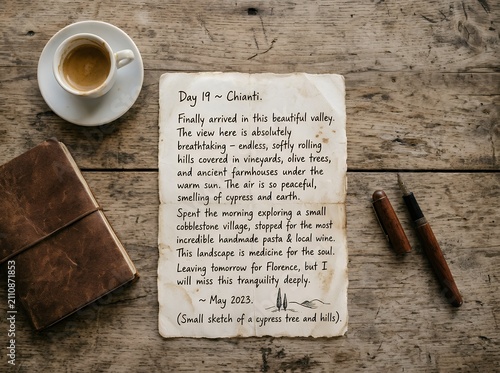 Day 19 ~ Chianti.
Finally arrived in this beautiful valley.
The view here is absolutely
breathtaking – endless, softly rolling
hills covered in vineyards, olive trees,
and ancient farmhouses under the
warm sun. The air is so peaceful,
smelling of cypress and earth.
Spent the morning exploring a small
cobblestone village, stopped for the most
incredible handmade pasta & local wine.
This landscape is medicine for the soul.
Leaving tomorrow for Florence, but I
will miss this tranquility deeply.
~ May 2023.
(Small sketch of a cypress tree and hills).
Adobe Stock | #2110871853